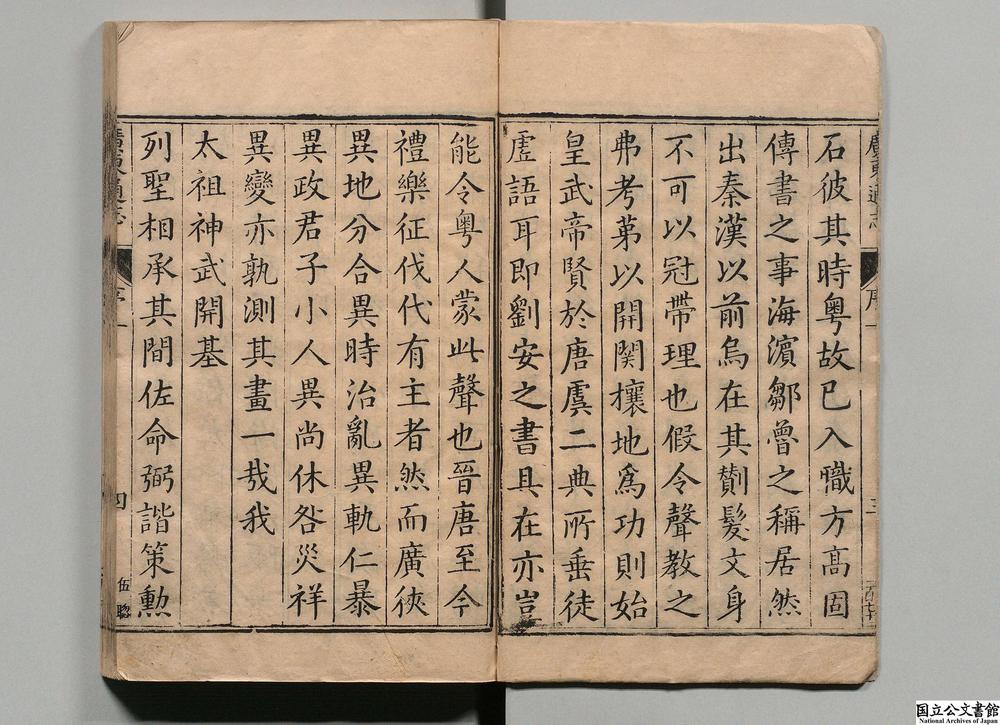 廣東通志
序
三
石彼其時粤故已入職方高固
傳書之事海濱鄒魯之稱居然
出秦漢以前烏在其劗髮文身
不可以冠帶理也假令聲教之
弗考第以開闢攘地爲功則始
皇武帝賢於唐虞二典所垂徒
虗語耳即劉安之書具在亦豈
能令粤人蒙此聲也晉唐至今
禮樂征伐代有主者然而廣狹
異地分合異時治亂異軌仁暴
異政君子小人異尚休咎災祥
異變亦孰測其畫一㦲我
太祖神武開基
列聖相承其間佐命弼諧策勳
廣東通志
序
四
伍聰
国立公文書館
National Archives of Japan